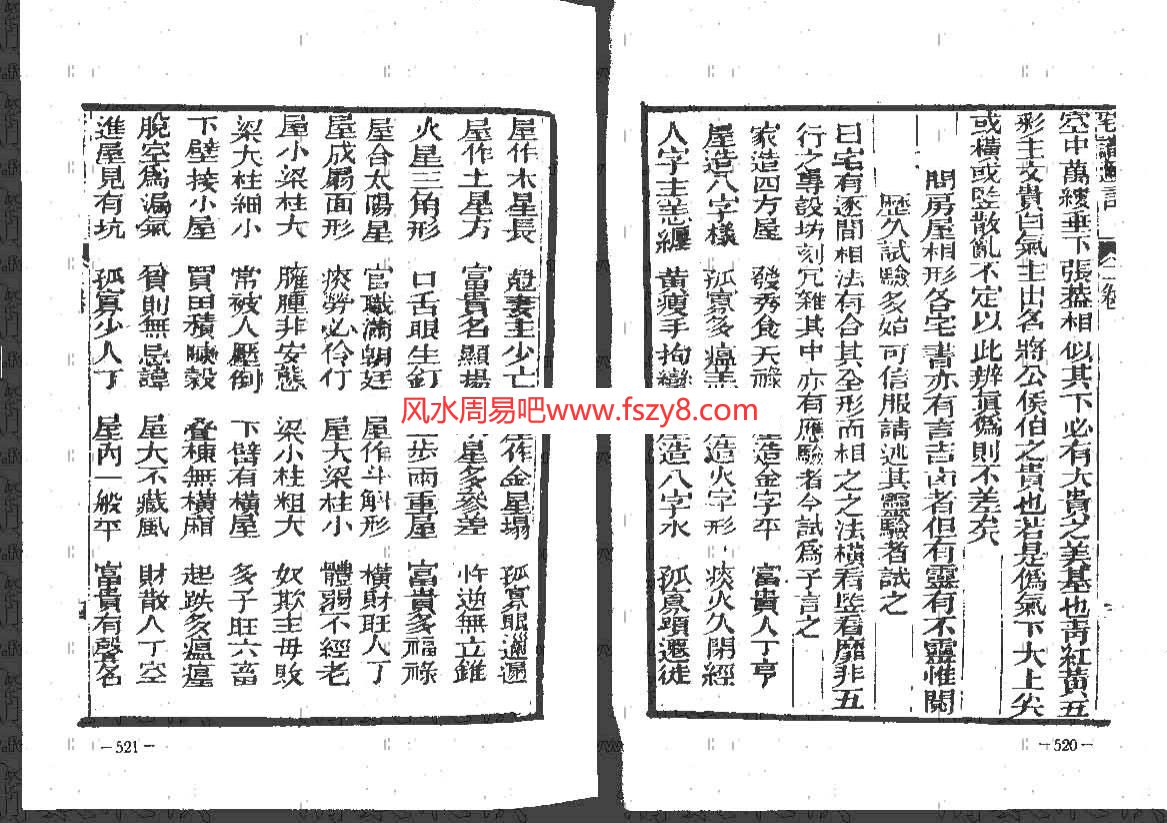 空中萬縷垂下張蓋相似其下必有大貴之美基也靑紅黃五
彩主文貴白氣主出名將公侯伯之貴也若是僞氣下大上尖
或橫或竪散亂不定以此辨眞僞則不差矣
問房屋相形各宅書亦有言吉凶者但有靈有不靈惟閱
歷久試驗多始可信服請述其靈驗者試之
曰宅有逐間相法有合其全形而相之之法橫看竪看靡非五
行之專設坊刻冗雜其中亦有應驗者今試爲子言之
家造四方屋 發秀食天祿 造金字平 富貴人丁亨
屋造八字樣 孤寡多瘟 造火字形 痰火久閉經
人字主恙纏 黃瘦手拘攣 造八字水 孤寡頭遷徒
—520—
屋作木星長 尅妻主少亡 作金星塌 孤寡眼邋遢
屋作土星方 富貴名顯揚 星多參差 忤逆無立錐
火星三角形 口舌眼生釘 步兩重屋 富貴多福祿
屋合太陽星 官職滿朝廷 屋作斗斛形 橫財旺人丁
屋成扇面形 痰勞必伶仃 屋大梁柱小 體弱不經老
屋小梁柱大 臃腫非安態 梁小柱粗大 奴欺主母敗
梁大柱細小 常被人壓倒 下臂有橫屋 多子旺六畜
下壁接小屋 買田積穀 叠棟無橫廂 起跌多瘟瘟
脫空爲漏氣 貧則無忌諱 屋大不藏風 財散人丁空
進屋見有坑 孤寡少人丁 屋內一般平 富貴有聲名
—521—
风水周易吧www.fszy8.com